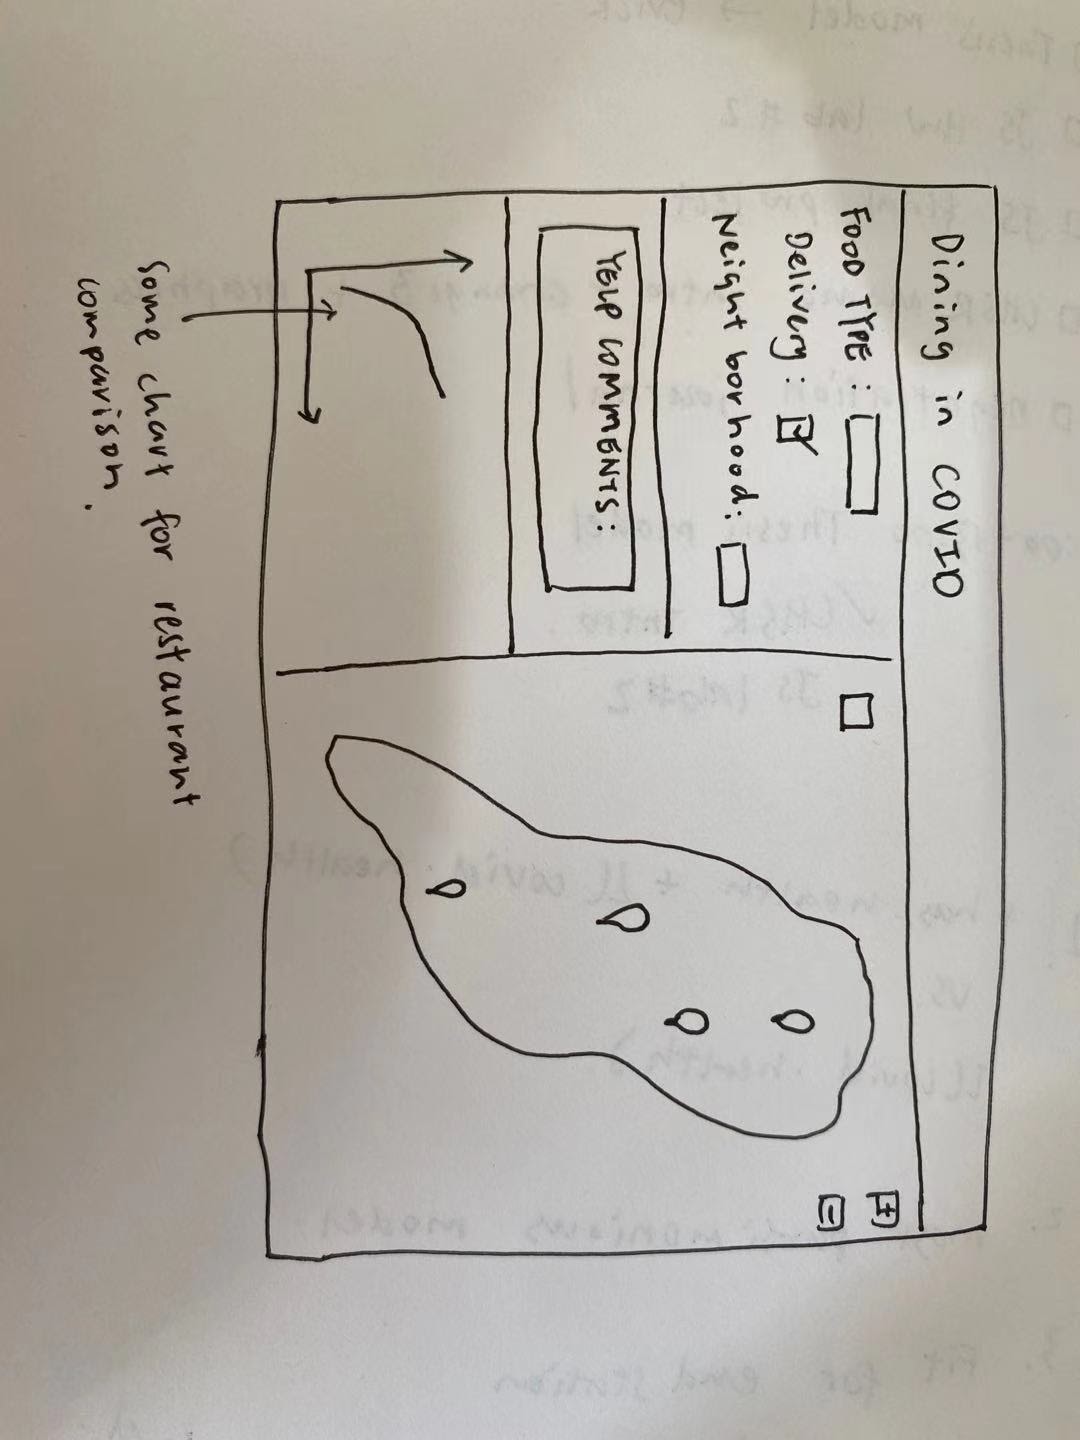 Dining in COVID
FOOD TYPE :
Delivery :
Neightborhood :
YELP COMMENTS :
+
-
Some chart for restaurant
comparison.